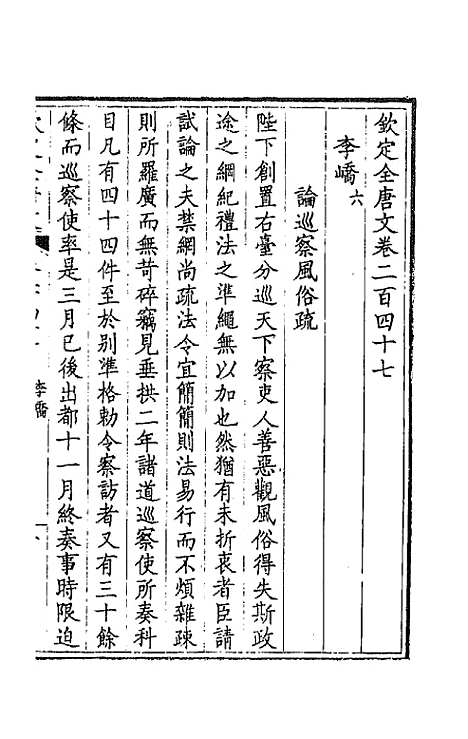 欽定全唐文卷二百四十七
李嶠六
論巡察風俗疏
陛下創置右臺分巡天下察吏人善惡觀風俗得失斯政
途之綱紀禮法之準繩無以加也然猶有未折衷者臣請
試論之夫禁網尚疏法令宜簡簡則法易行而不煩雜疎
則所羅廣而無苛碎竊見垂拱二年諸道巡察使所奏科
目凡有四十四件至於别準格勅令察訪者又有三十餘
條而巡察使率是三月已後出都十一月終奏事時限迫
李嶠